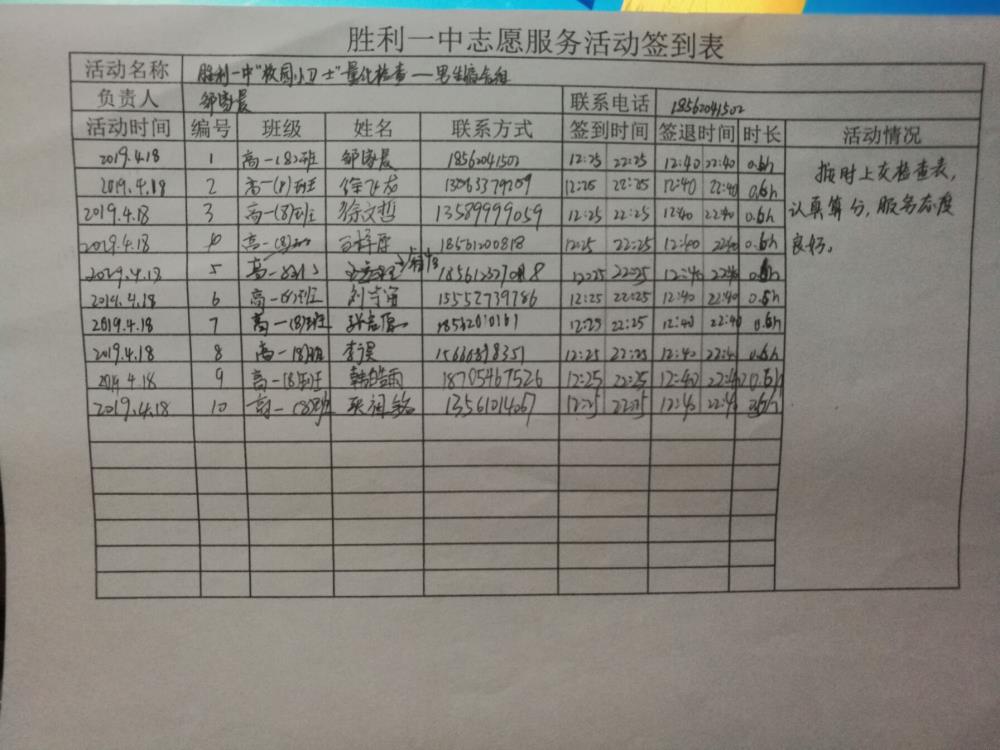 胜利一中志愿服务活动签到表
活动名称 胜利一中“校园小卫士”量化检查—男生宿舍组
负责人 邹家晨 联系电话 18562041502
活动时间 编号 班级 姓名 联系方式 签到时间 签退时间 时长 活动情况
2019.4.18 1 高一(8)班 邹家晨 18562041502 12:25 22:25 12:40 22:40 0.6h
2019.4.18 2 高一(8)班 12:25 22:25 12:40 22:40 0.6h
2019.4.18 3 高一(8)班 徐文哲 13589999059 12:25 22:25 12:40 22:40 0.6h
2019.4.18 高一(8)班 18561200818 12:25 22:25 12:40 22:40 0.6h
2019.4.18 5 12:25 22:25 12:40 22:40
2019.4.18 6 高一(8)班 15552739786 12:25 22:25 12:40 22:40 0.6h
2019.4.18 7 高一(8)班 22:25 12:40 22:40 0.6h
2019.4.18 8 高一(8)班 李昊 12:25 22:25 12:40 22:40 0.6h
2019.4.18 9 高一(8)班 韩皓雨 18705467526 12:25 22:25 12:40 22:40 0.6h
2019.4.18 10 高一(8)班 13561014067 12:25 22:25 12:40 22:40
按时上交检查表,
认真算分,服务态度
良好。